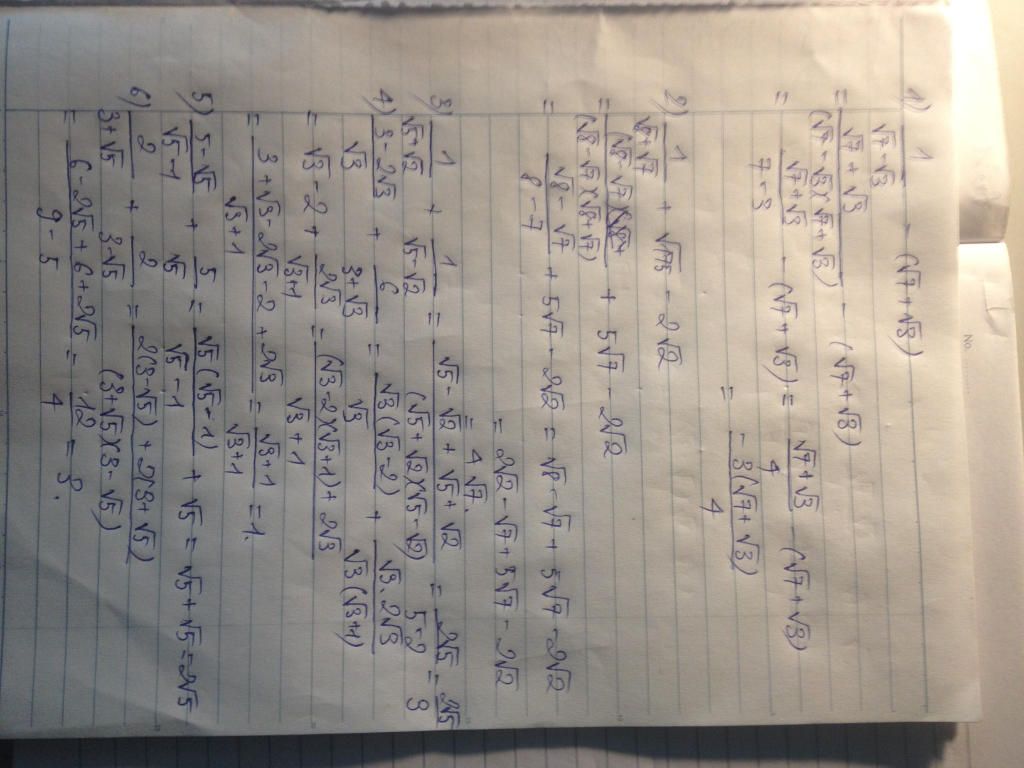 No.
1) 1/(√7 - √3) - (√7 + √3)
= (√7 + √3)/((√7 - √3)(√7 + √3)) - (√7 + √3)
= (√7 + √3)/(7 - 3) - (√7 + √3) = (√7 + √3)/4 - (√7 + √3)
= -3(√7 + √3)/4
2) 1/(√8 + √7) + √175 - 2√2
= (√8 - √7)/((√8 - √7)(√8 + √7)) + 5√7 - 2√2
= (√8 - √7)/(8 - 7) + 5√7 - 2√2 = √8 - √7 + 5√7 - 2√2
= 2√2 - √7 + 5√7 - 2√2
= 4√7.
3) 1/(√5 + √2) + 1/(√5 - √2) = (√5 - √2 + √5 + √2)/((√5 + √2)(√5 - √2)) = 2√5/(5 - 2) = 2√5/3
4) (3 - 2√3)/√3 + 6/(3 + √3) = √3(√3 - 2)/√3 + √3.2√3/(√3(√3 + 1))
= √3 - 2 + 2√3/(√3 + 1) = ((√3 - 2)(√3 + 1) + 2√3)/(√3 + 1)
= (3 + √3 - 2√3 - 2 + 2√3)/(√3 + 1) = (√3 + 1)/(√3 + 1) = 1.
5) (5 - √5)/(√5 - 1) + 5/√5 = √5(√5 - 1)/(√5 - 1) + √5 = √5 + √5 = 2√5
6) 2/(3 + √5) + 2/(3 - √5) = (2(3 - √5) + 2(3 + √5))/((3 + √5)(3 - √5))
= (6 - 2√5 + 6 + 2√5)/(9 - 5) = 12/4 = 3.